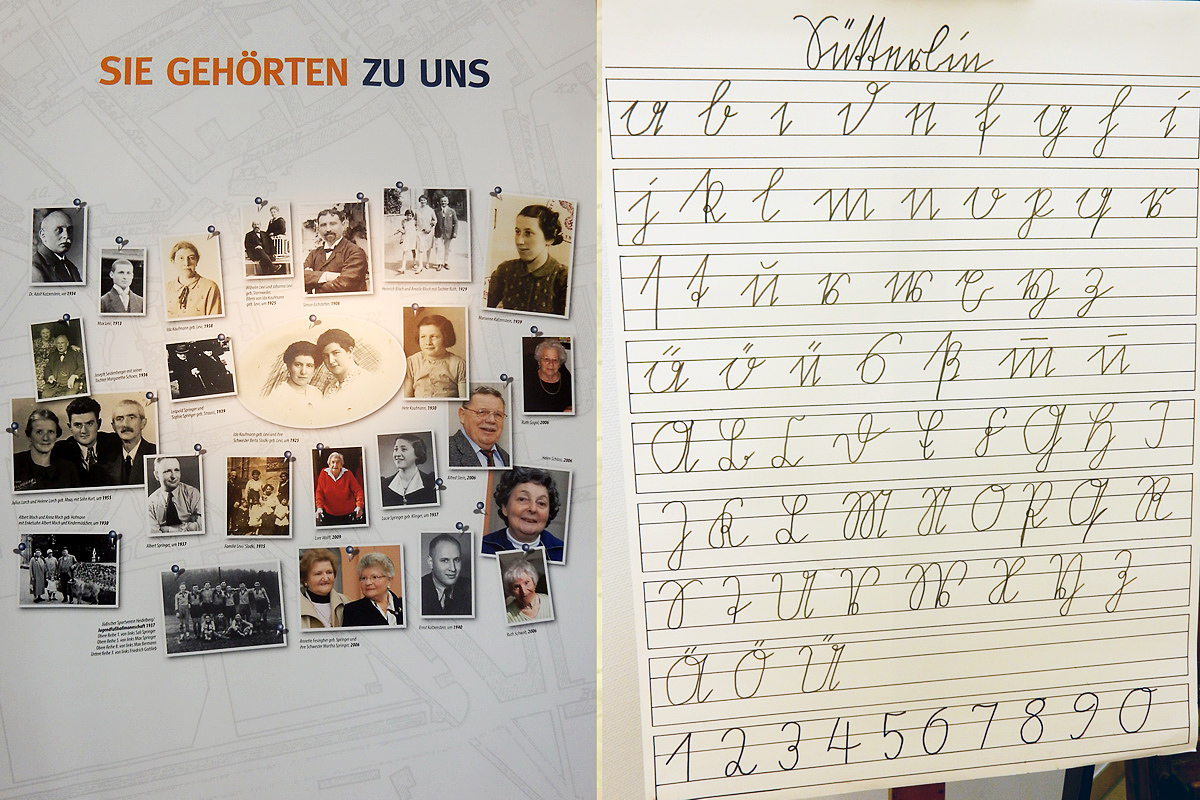 SIE GEHÖRTEN ZU UNS
Dr. Adolf Katzenstein, um 1934
Max Levi, 1915
Ida Kaufmann geb. Levi, 1938
Wilhelm Levi und Johanna Levi
geb. Sternweiler,
Eltern von Ida Kaufmann
geb. Levi, um 1925
Simon Eichstetter, 1908
Heinrich Bloch und Amalie Bloch mit Tochter Ruth, 1929
Marianne Katzenstein, 1939
Joseph Seidenberger mit seiner
Tochter Margarethe Schoen, 1938
Leopold Springer und
Sophie Springer geb. Strauss, 1939
Ida Kaufmann geb. Levi und ihre
Schwester Berta Sladki geb. Levi, um 1925
Irene Kaufmann, 1930
Ruth Gogol, 2006
Julius Lorch und Helene Lorch geb. Maas, mit Sohn Kurt, um 1955
Albert Moch und Anna Moch geb. Hofmann
mit Enkelsohn Albert Moch und Kindermädchen, um 1930
Albert Springer, um 1937
Familie Levi/ Sladki, 1915
Lore Wolff, 2009
Lucie Springer geb. Klinger, um 1937
Alfred Stein, 2006
2006
Jüdischer Sportverein Heidelberg/
Jugendfußballmannschaft 1937
Obere Reihe 1. von links Sali Springer
Obere Reihe 5. von links Max Springer
Obere Reihe 8. von links Max Bermann
Untere Reihe 3. von links Friedrich Gottlieb
Annette Fesingher geb. Springer und
ihre Schwester Martha Springer, 2006
Ernst Katzenstein, um 1940
Ruth Schwell, 2006
Sütterlin
a b c d e f g h i
j k l m n o p q r
s t u v w x y z
ä ö ü ß m̄ n̄
A B C D E F G H I
J K L M N O P Q R
S T U V W X Y Z
Ä Ö Ü
1 2 3 4 5 6 7 8 9 0